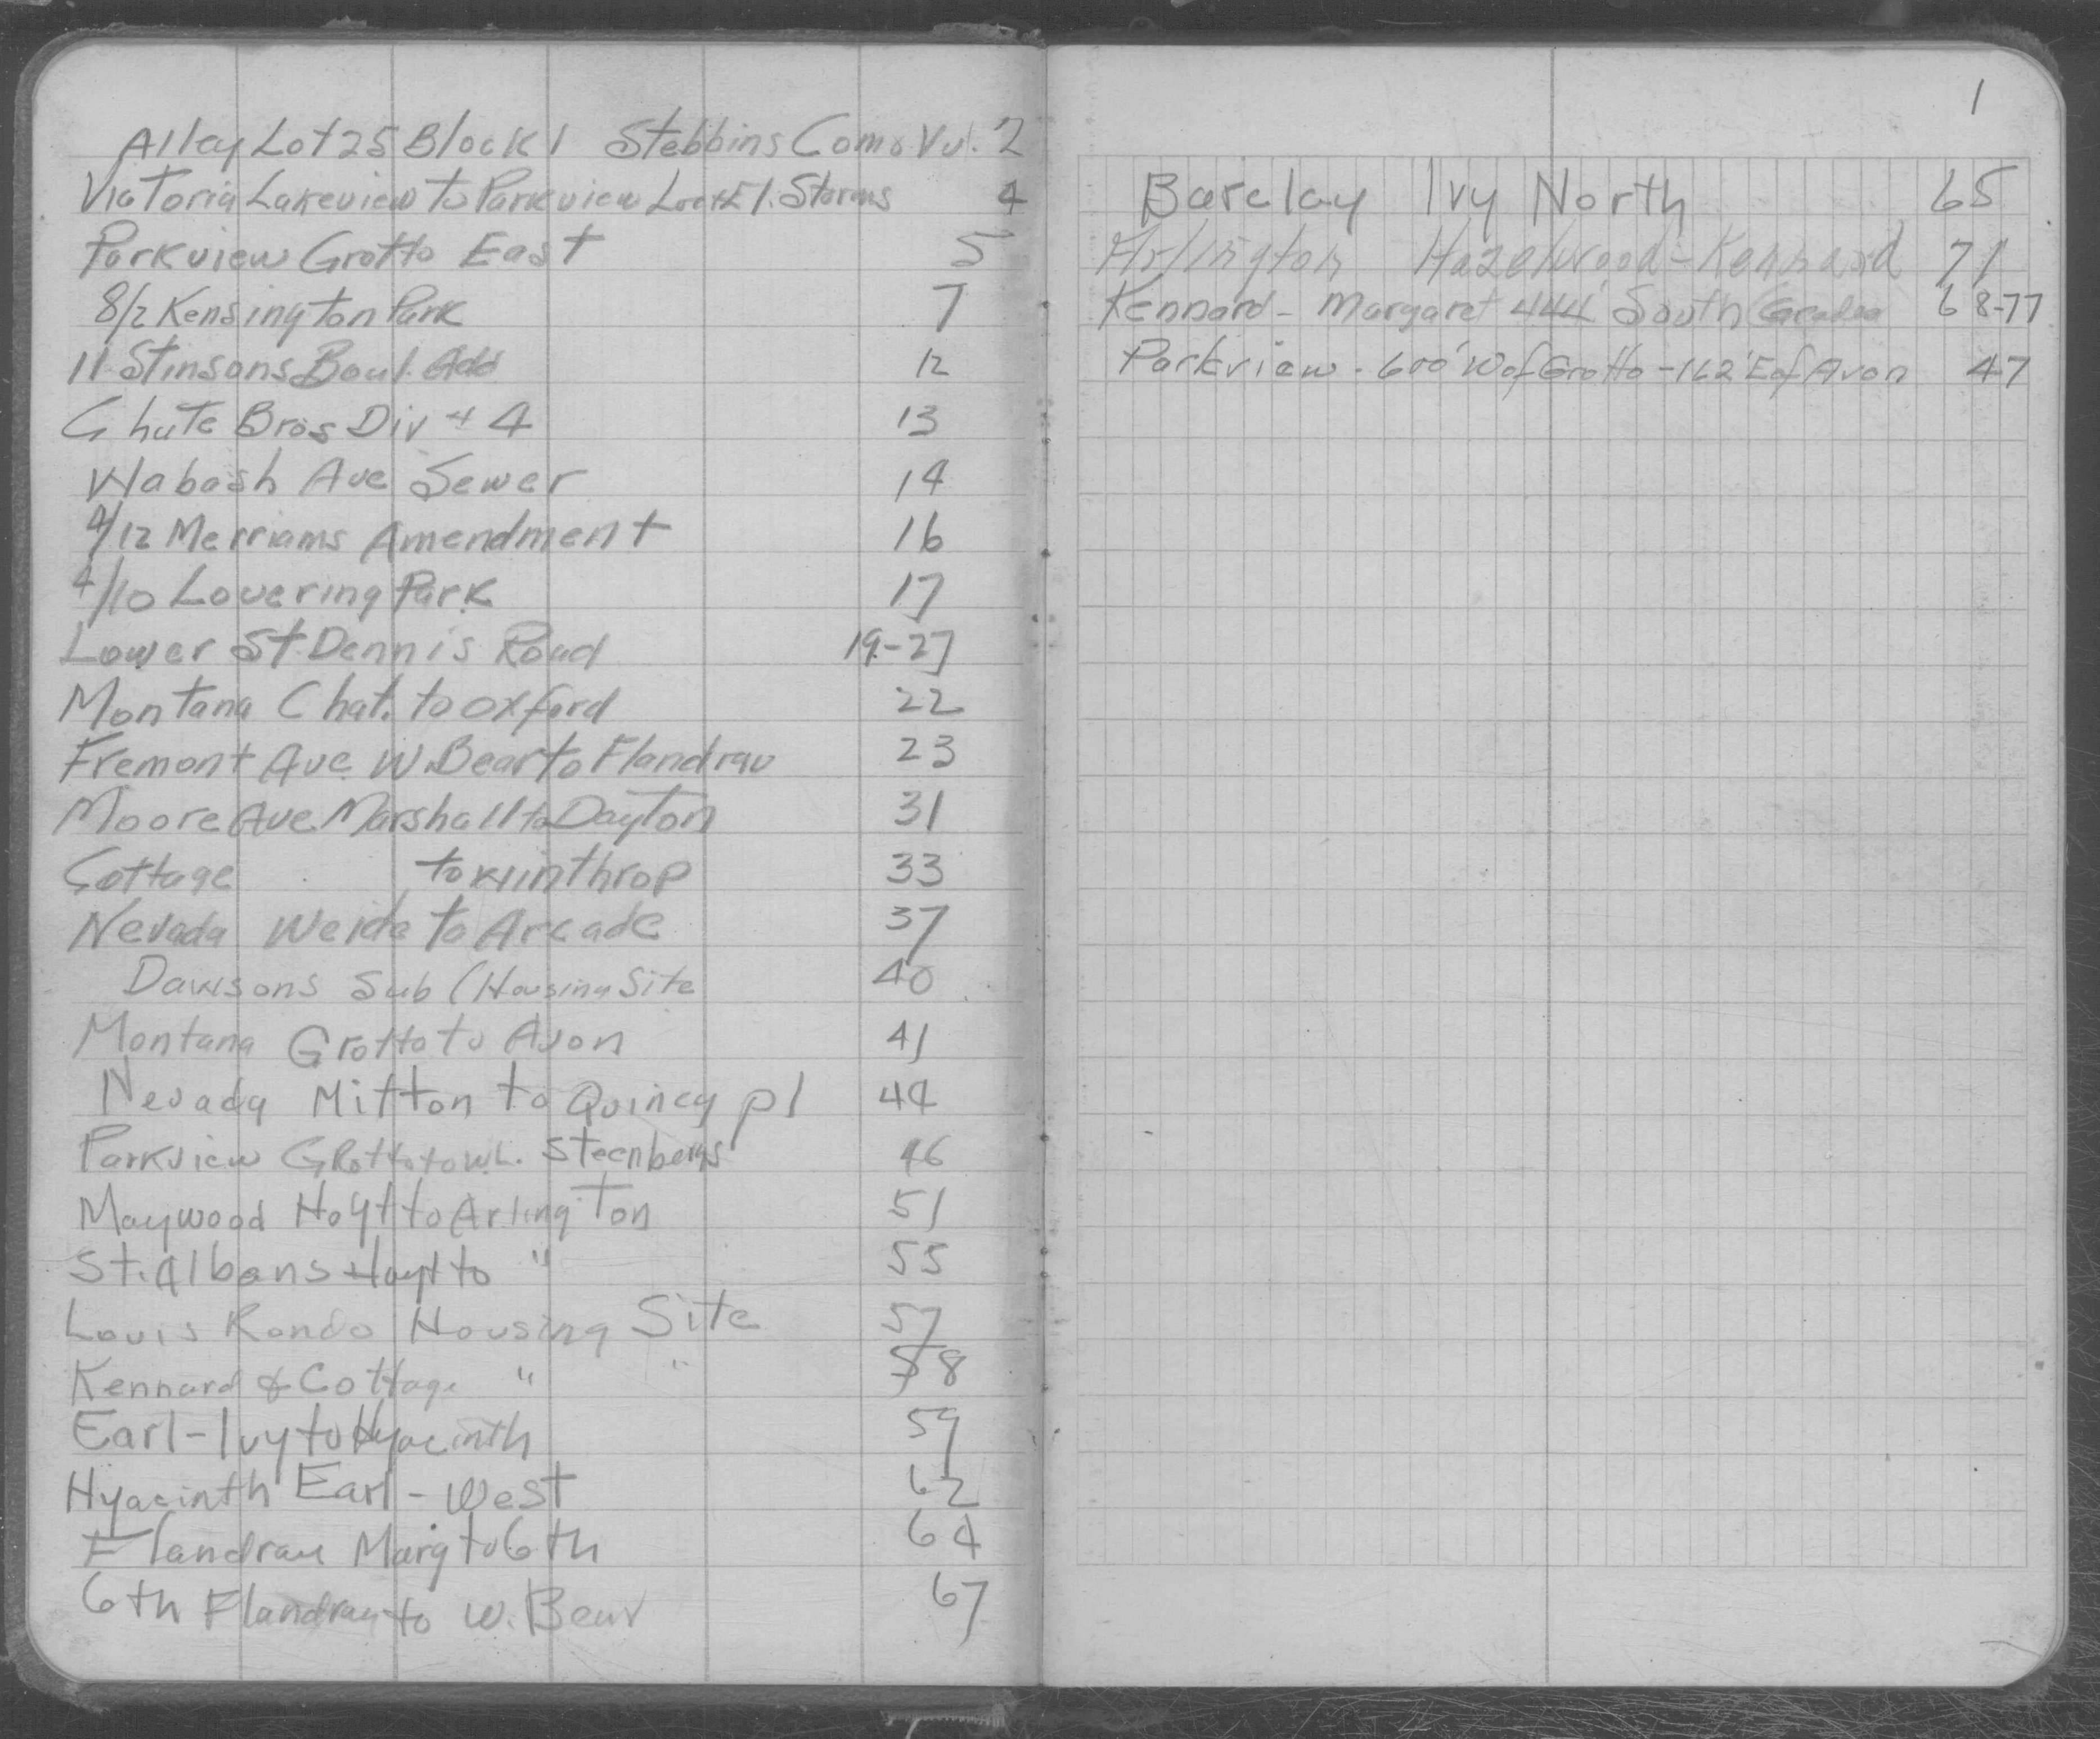 Alley Lot 25 Block 1 Stebbins Como Vu. 2
Victoria Lakeview to Parkview 4
Parkview Grotto East 5
8/2 Kensington Park 7
11 Stinsons Boul. Add 12
Chute Bros Div # 4 13
Wabash Ave Sewer 14
4/12 Merriams Amendment 16
4/10 Lovering Park 17
Lower St. Dennis Road 19-27
Montana Chat. to Oxford 22
Fremont Ave W. Bear to Flandrau 23
Moore Ave Marshall to Dayton 31
Cottage to Winthrop 33
Nevada Weide to Arcade 37
Dawsons Sub (Housing Site 40
Montana Grotto to Avon 41
Nevada Mitton to Quincy pl 44
Parkview Grotto to W.L. Steenbergs 46
Maywood Hoyt to Arlington 51
St. Albans Hoyt to " 55
Louis Rondo Housing Site 57
Kennard & Cottage " " 58
Earl-Ivy to Hyacinth 59
Hyacinth Earl - West 62
Flandrau Marg to 6th 64
6th Flandrau to W. Bear 67
1
Barclay Ivy North 65
Arlington Hazelwood - Kennard 71
Kennard - Margaret 444' South Grades 68-77
Parkview - 600' W of Grotto - 162' E of Avon 47